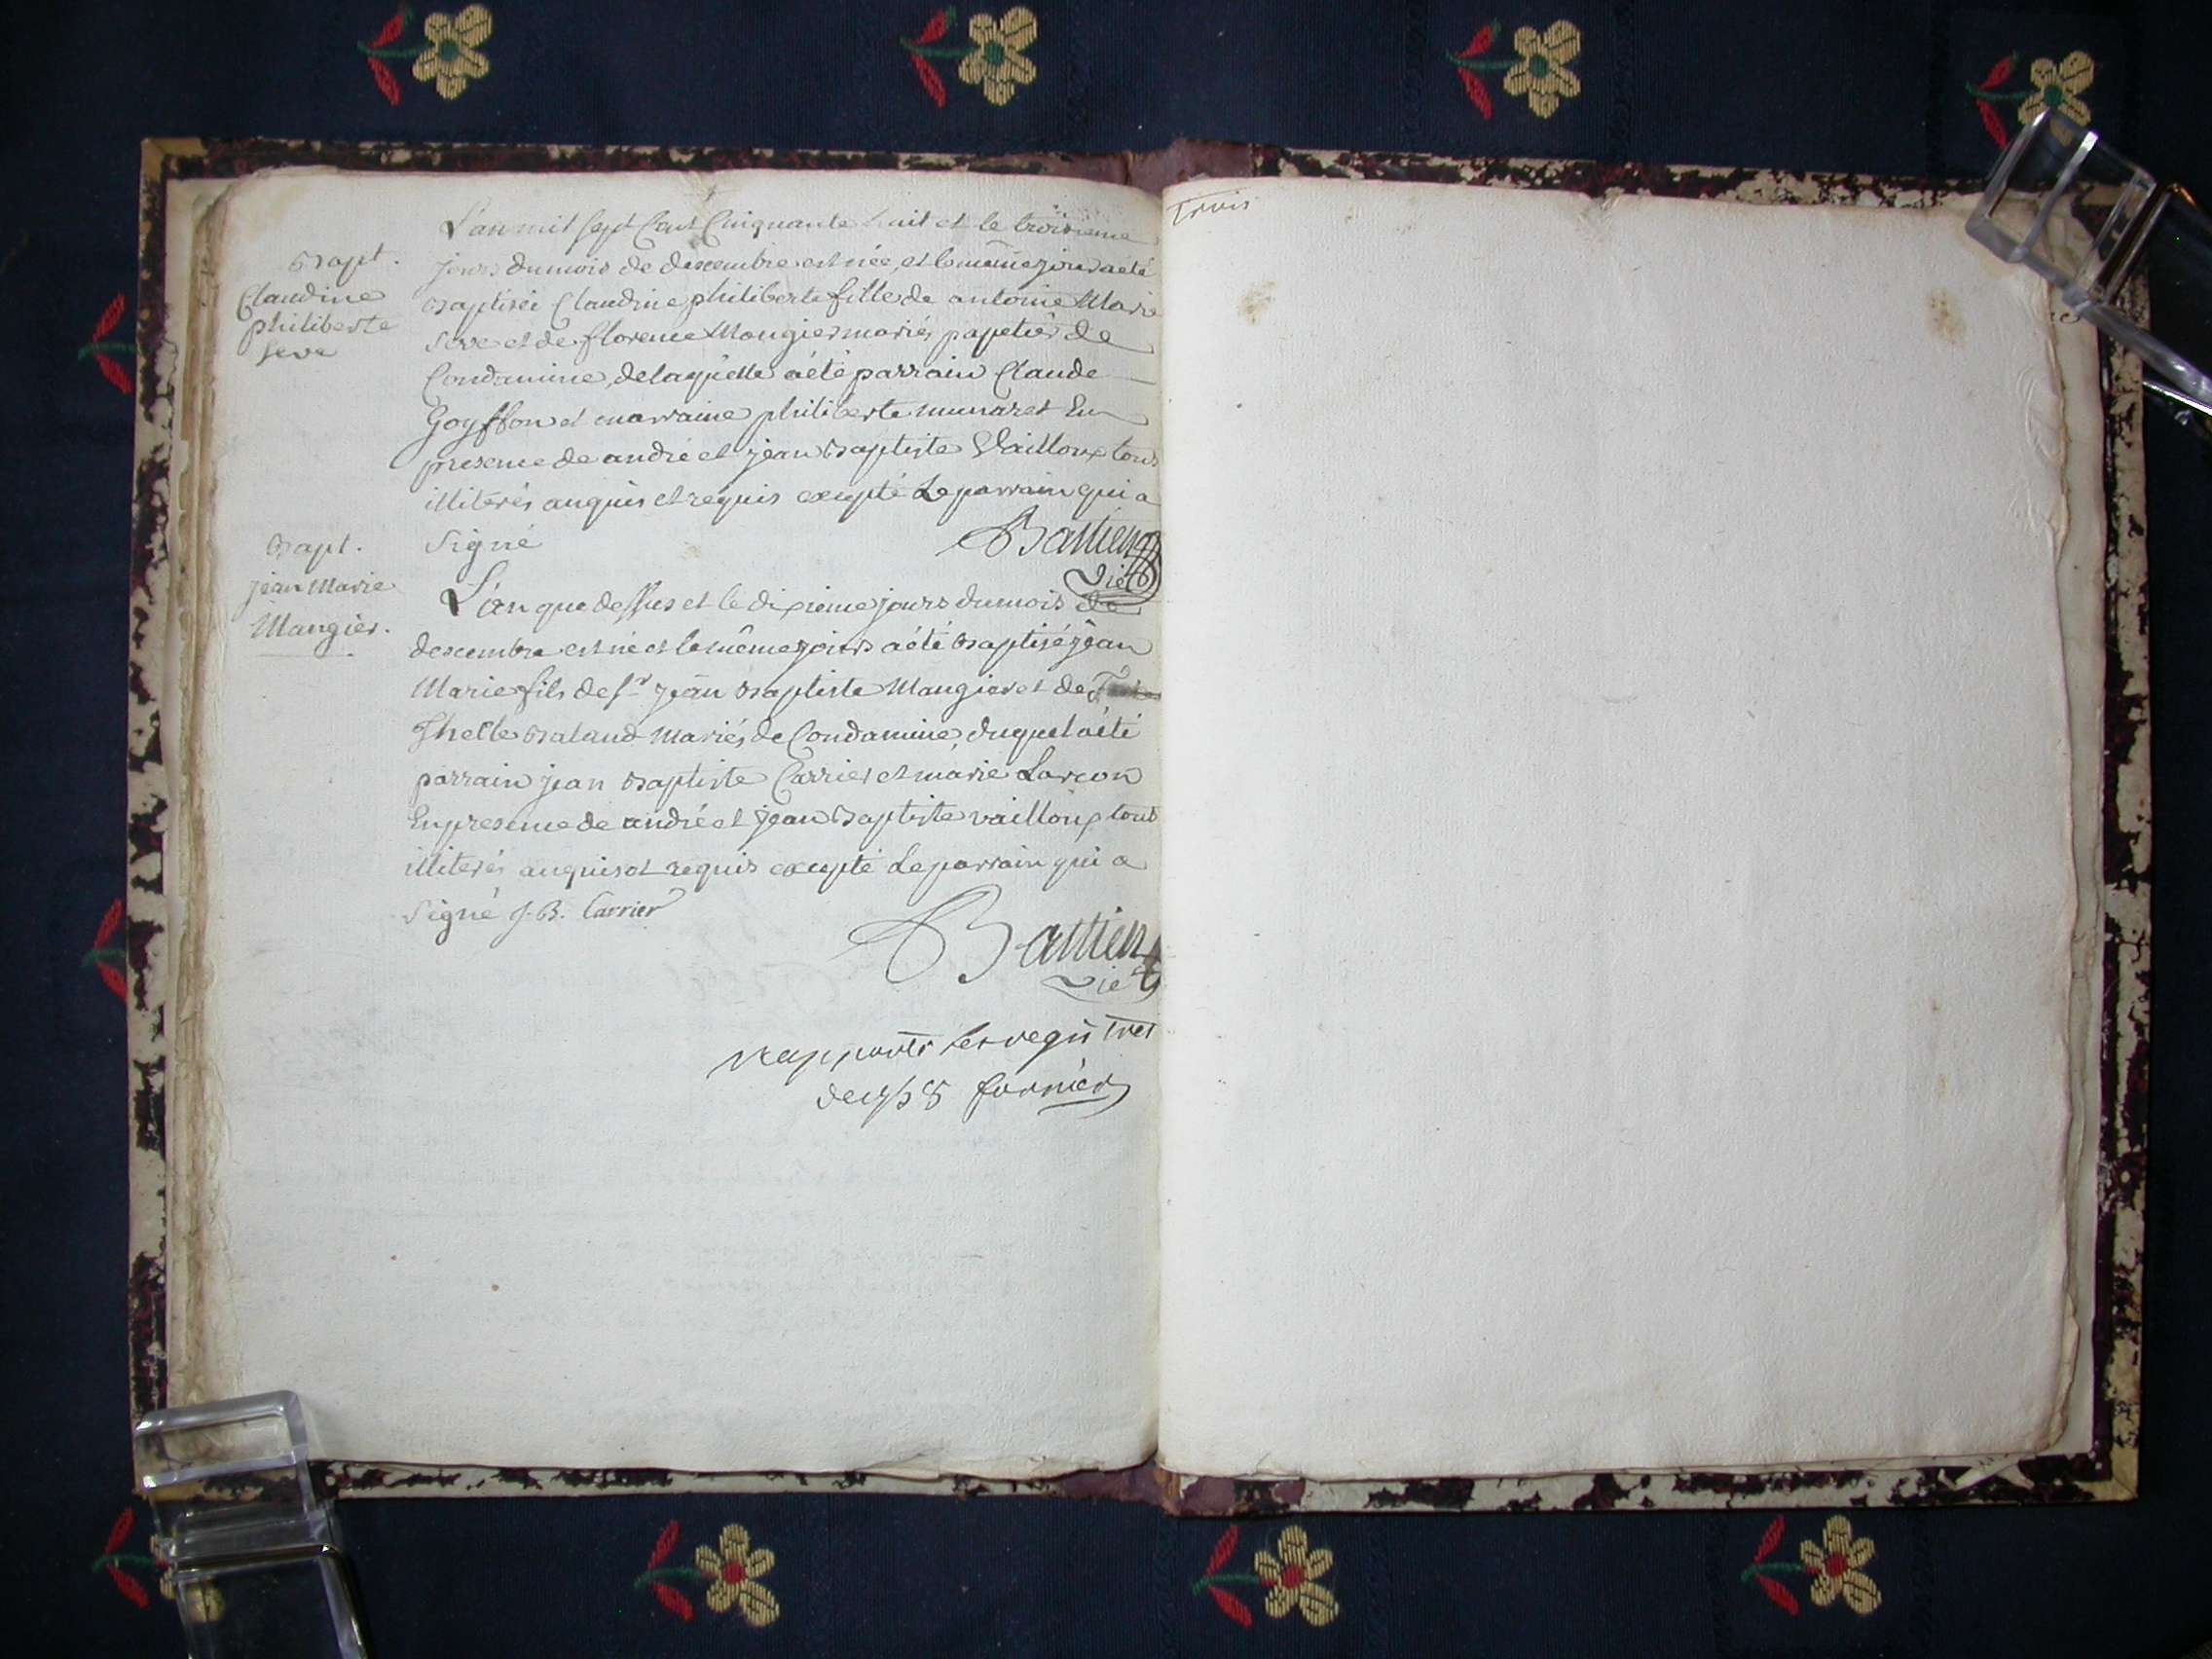 Bapt.
Claudine
philiberte
seve
L'an mil sept Cent Cinquante huit et le troisieme
jours du mois de descembre est née, et le même jours a été
Baptisée Claudine philiberte fille de antoine Marie
Seve et de florence Mougier mariés papetier de
Condamine, de laquelle a été parrain Claude
Goyffon et marraine philiberte munaret En
presence de andré et jean Baptiste Vailloux tous
illiterés anquis et requis excepté Le parrain qui a
signé
Bastien
Vic
Bapt.
jean Marie
Maugier.
L'an que dessus et le dixieme jours du mois de
descembre est né et le même jours a été Baptisé jean
Marie fils de sr jean Baptiste Maugier et de
Thelle Balaud Mariés de Condamine, duquel a été
parrain jean Baptiste Carrier et marie Larcon
En presence de andré et jean Baptiste vailloux tous
illiterés anquis et requis excepté Le parrain qui a
Signé J. B. Carrier
Bastien
Vic
rapporté les registres
de 1758 fornier
Trois